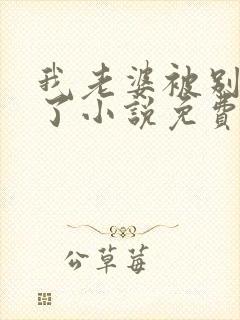 我老婆被别
了小説免費
公草莓